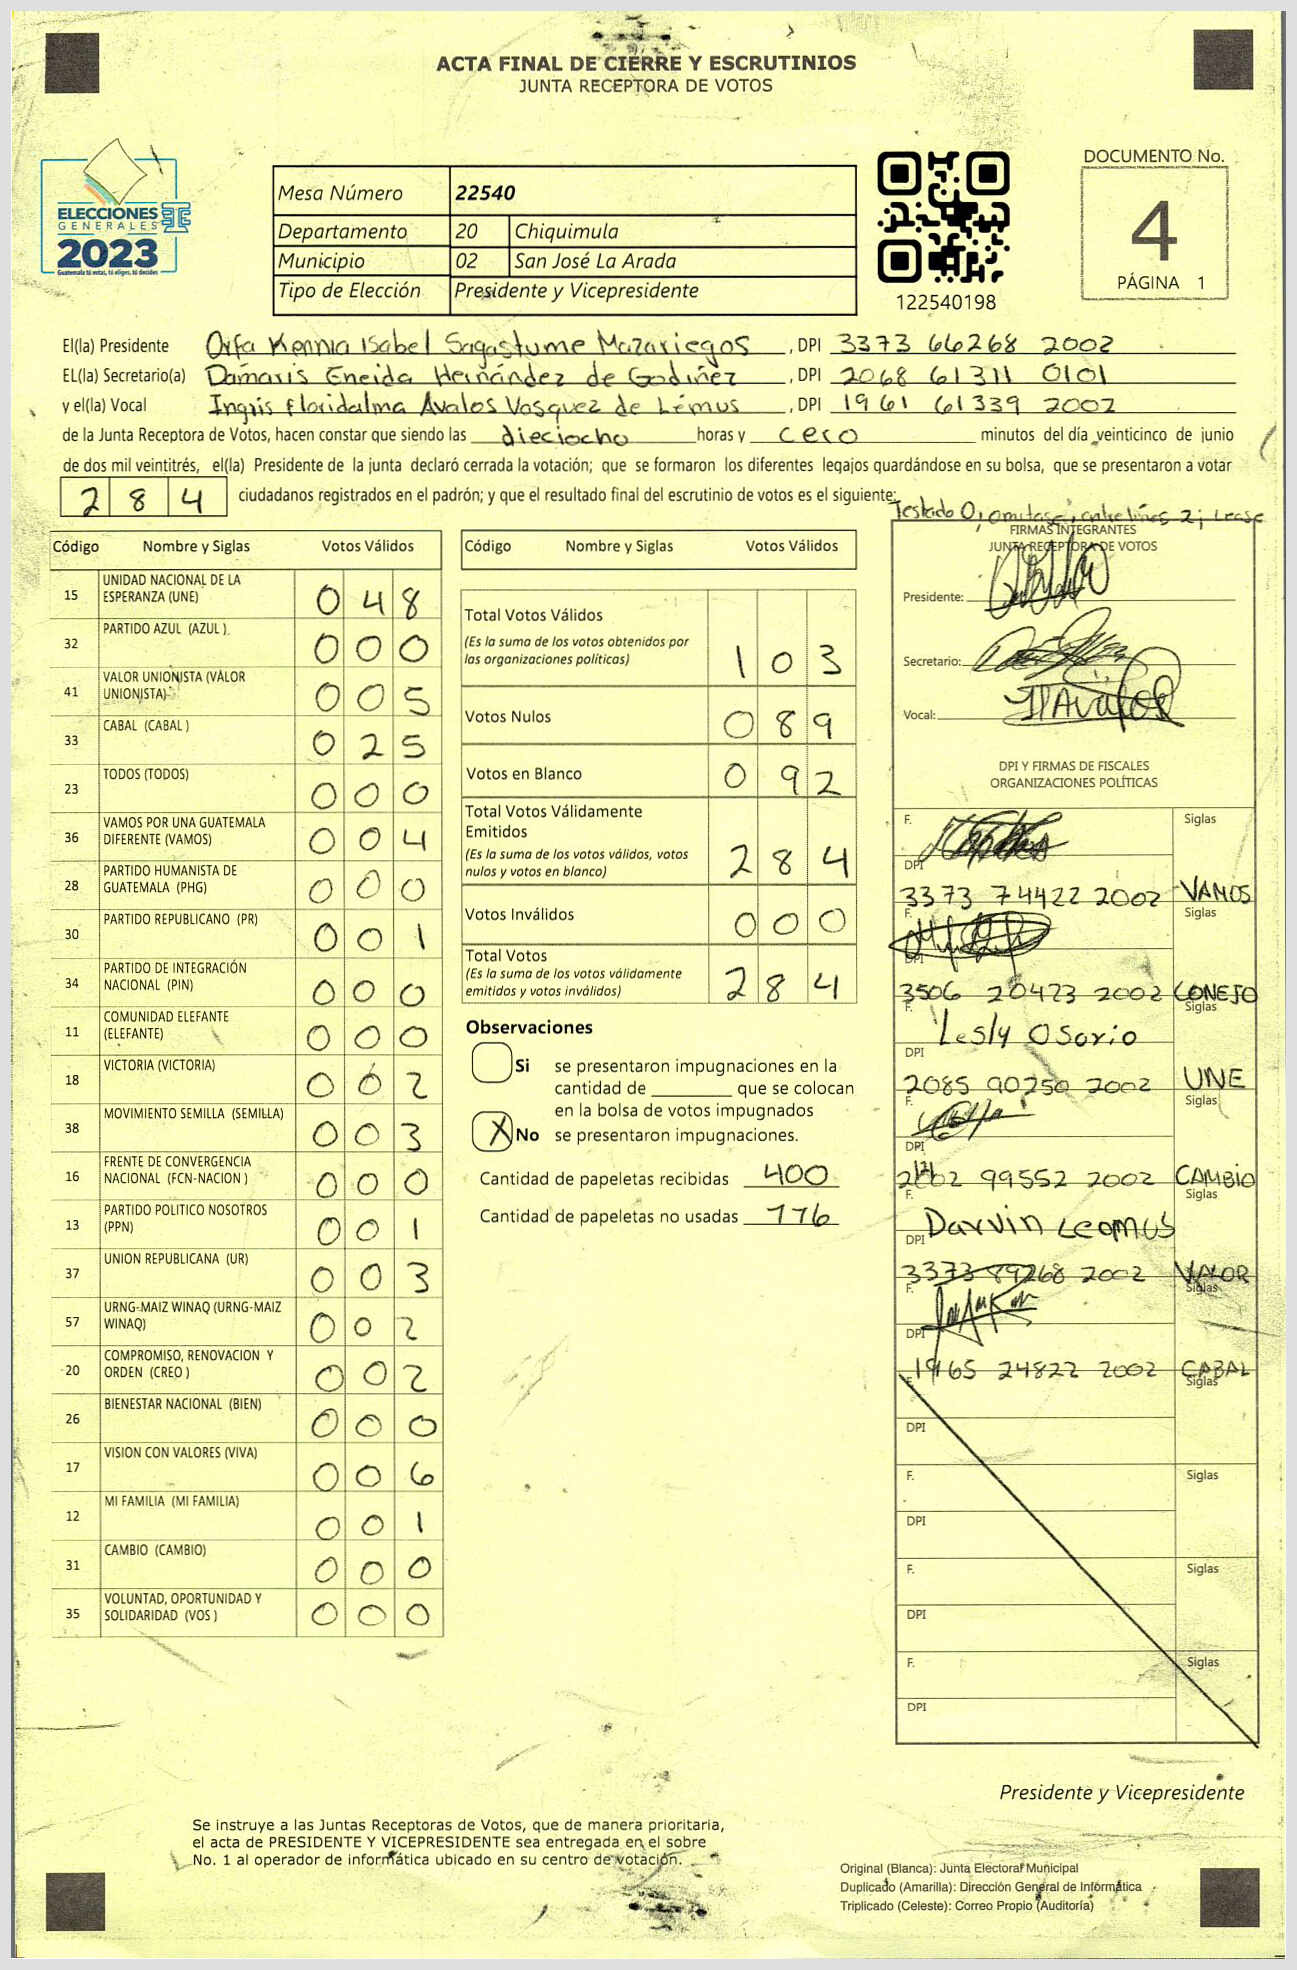 ACTA FINAL DE CIERRE Y ESCRUTINIOS
JUNTA RECEPTORA DE VOTOS
ELECCIONES
GENERALES
2023
Guatemala tú votas, tú eliges, tú decides
Mesa Número 22540
Departamento 20 Chiquimula
Municipio 02 San José La Arada
Tipo de Elección Presidente y Vicepresidente
122540198
DOCUMENTO No.
4
PÁGINA 1
El(la) Presidente Orfa Kennia Isabel Sagastume Mazariegos, DPI 3373 66268 2002
EL(la) Secretario(a) Damaris Eneida Hernández de Godinez, DPI 2068 61311 0101
y el(la) Vocal Ingris Floridalma Avalos Vasquez de Lémus, DPI 1961 61339 2002
de la Junta Receptora de Votos, hacen constar que siendo las dieciocho horas y cero minutos del día veinticinco de junio
de dos mil veintitrés, el(la) Presidente de la junta declaró cerrada la votación; que se formaron los diferentes legajos quardándose en su bolsa, que se presentaron a votar
284 ciudadanos registrados en el padrón; y que el resultado final del escrutinio de votos es el siguiente:
Testado 0; omitase; entre líneas 2; Lease
Código Nombre y Siglas Votos Válidos
15 UNIDAD NACIONAL DE LA ESPERANZA (UNE) 0 4 8
32 PARTIDO AZUL (AZUL ) 0 0 0
41 VALOR UNIONISTA (VALOR UNIONISTA) 0 0 5
33 CABAL (CABAL ) 0 2 5
23 TODOS (TODOS) 0 0 0
36 VAMOS POR UNA GUATEMALA DIFERENTE (VAMOS) 0 0 4
28 PARTIDO HUMANISTA DE GUATEMALA (PHG) 0 0 0
30 PARTIDO REPUBLICANO (PR) 0 0 1
34 PARTIDO DE INTEGRACIÓN NACIONAL (PIN) 0 0 0
11 COMUNIDAD ELEFANTE (ELEFANTE) 0 0 0
18 VICTORIA (VICTORIA) 0 0 2
38 MOVIMIENTO SEMILLA (SEMILLA) 0 0 3
16 FRENTE DE CONVERGENCIA NACIONAL (FCN-NACION ) 0 0 0
13 PARTIDO POLITICO NOSOTROS (PPN) 0 0 1
37 UNION REPUBLICANA (UR) 0 0 3
57 URNG-MAIZ WINAQ (URNG-MAIZ WINAQ) 0 0 2
20 COMPROMISO, RENOVACION Y ORDEN (CREO ) 0 0 2
26 BIENESTAR NACIONAL (BIEN) 0 0 0
17 VISION CON VALORES (VIVA) 0 0 6
12 MI FAMILIA (MI FAMILIA) 0 0 1
31 CAMBIO (CAMBIO) 0 0 0
35 VOLUNTAD, OPORTUNIDAD Y SOLIDARIDAD (VOS ) 0 0 0
Código Nombre y Siglas Votos Válidos
Total Votos Válidos 1 0 3
(Es la suma de los votos obtenidos por
las organizaciones políticas)
Votos Nulos 0 8 9
Votos en Blanco 0 9 2
Total Votos Válidamente
Emitidos 2 8 4
(Es la suma de los votos válidos, votos
nulos y votos en blanco)
Votos Inválidos 0 0 0
Total Votos 2 8 4
(Es la suma de los votos válidamente
emitidos y votos inválidos)
Observaciones
Si se presentaron impugnaciones en la
cantidad de ________ que se colocan
en la bolsa de votos impugnados
X No se presentaron impugnaciones.
Cantidad de papeletas recibidas 400
Cantidad de papeletas no usadas 116
FIRMAS INTEGRANTES
JUNTA RECEPTORA DE VOTOS
Presidente:
Secretario:
Vocal: IFAvalos
DPI Y FIRMAS DE FISCALES
ORGANIZACIONES POLÍTICAS
F. Siglas
DPI 3373 74422 2002 VAMOS
F. Siglas
DPI 3506 20423 2002 CONEJO
F. Lesly Osorio Siglas
DPI 2085 90250 2002 UNE
F. Siglas
DPI 99552 2002 CAMBIO
F. Darvin Leomus Siglas
DPI 3373 89268 2002 VALOR
F. Siglas
DPI 1965 24822 2002 CABAL
F. Siglas
DPI
F. Siglas
DPI
F. Siglas
DPI
F. Siglas
DPI
Presidente y Vicepresidente
Se instruye a las Juntas Receptoras de Votos, que de manera prioritaria,
el acta de PRESIDENTE Y VICEPRESIDENTE sea entregada en el sobre
No. 1 al operador de informática ubicado en su centro de votación.
Original (Blanca): Junta Electoral Municipal
Duplicado (Amarilla): Dirección General de Informática
Triplicado (Celeste): Correo Propio (Auditoría)